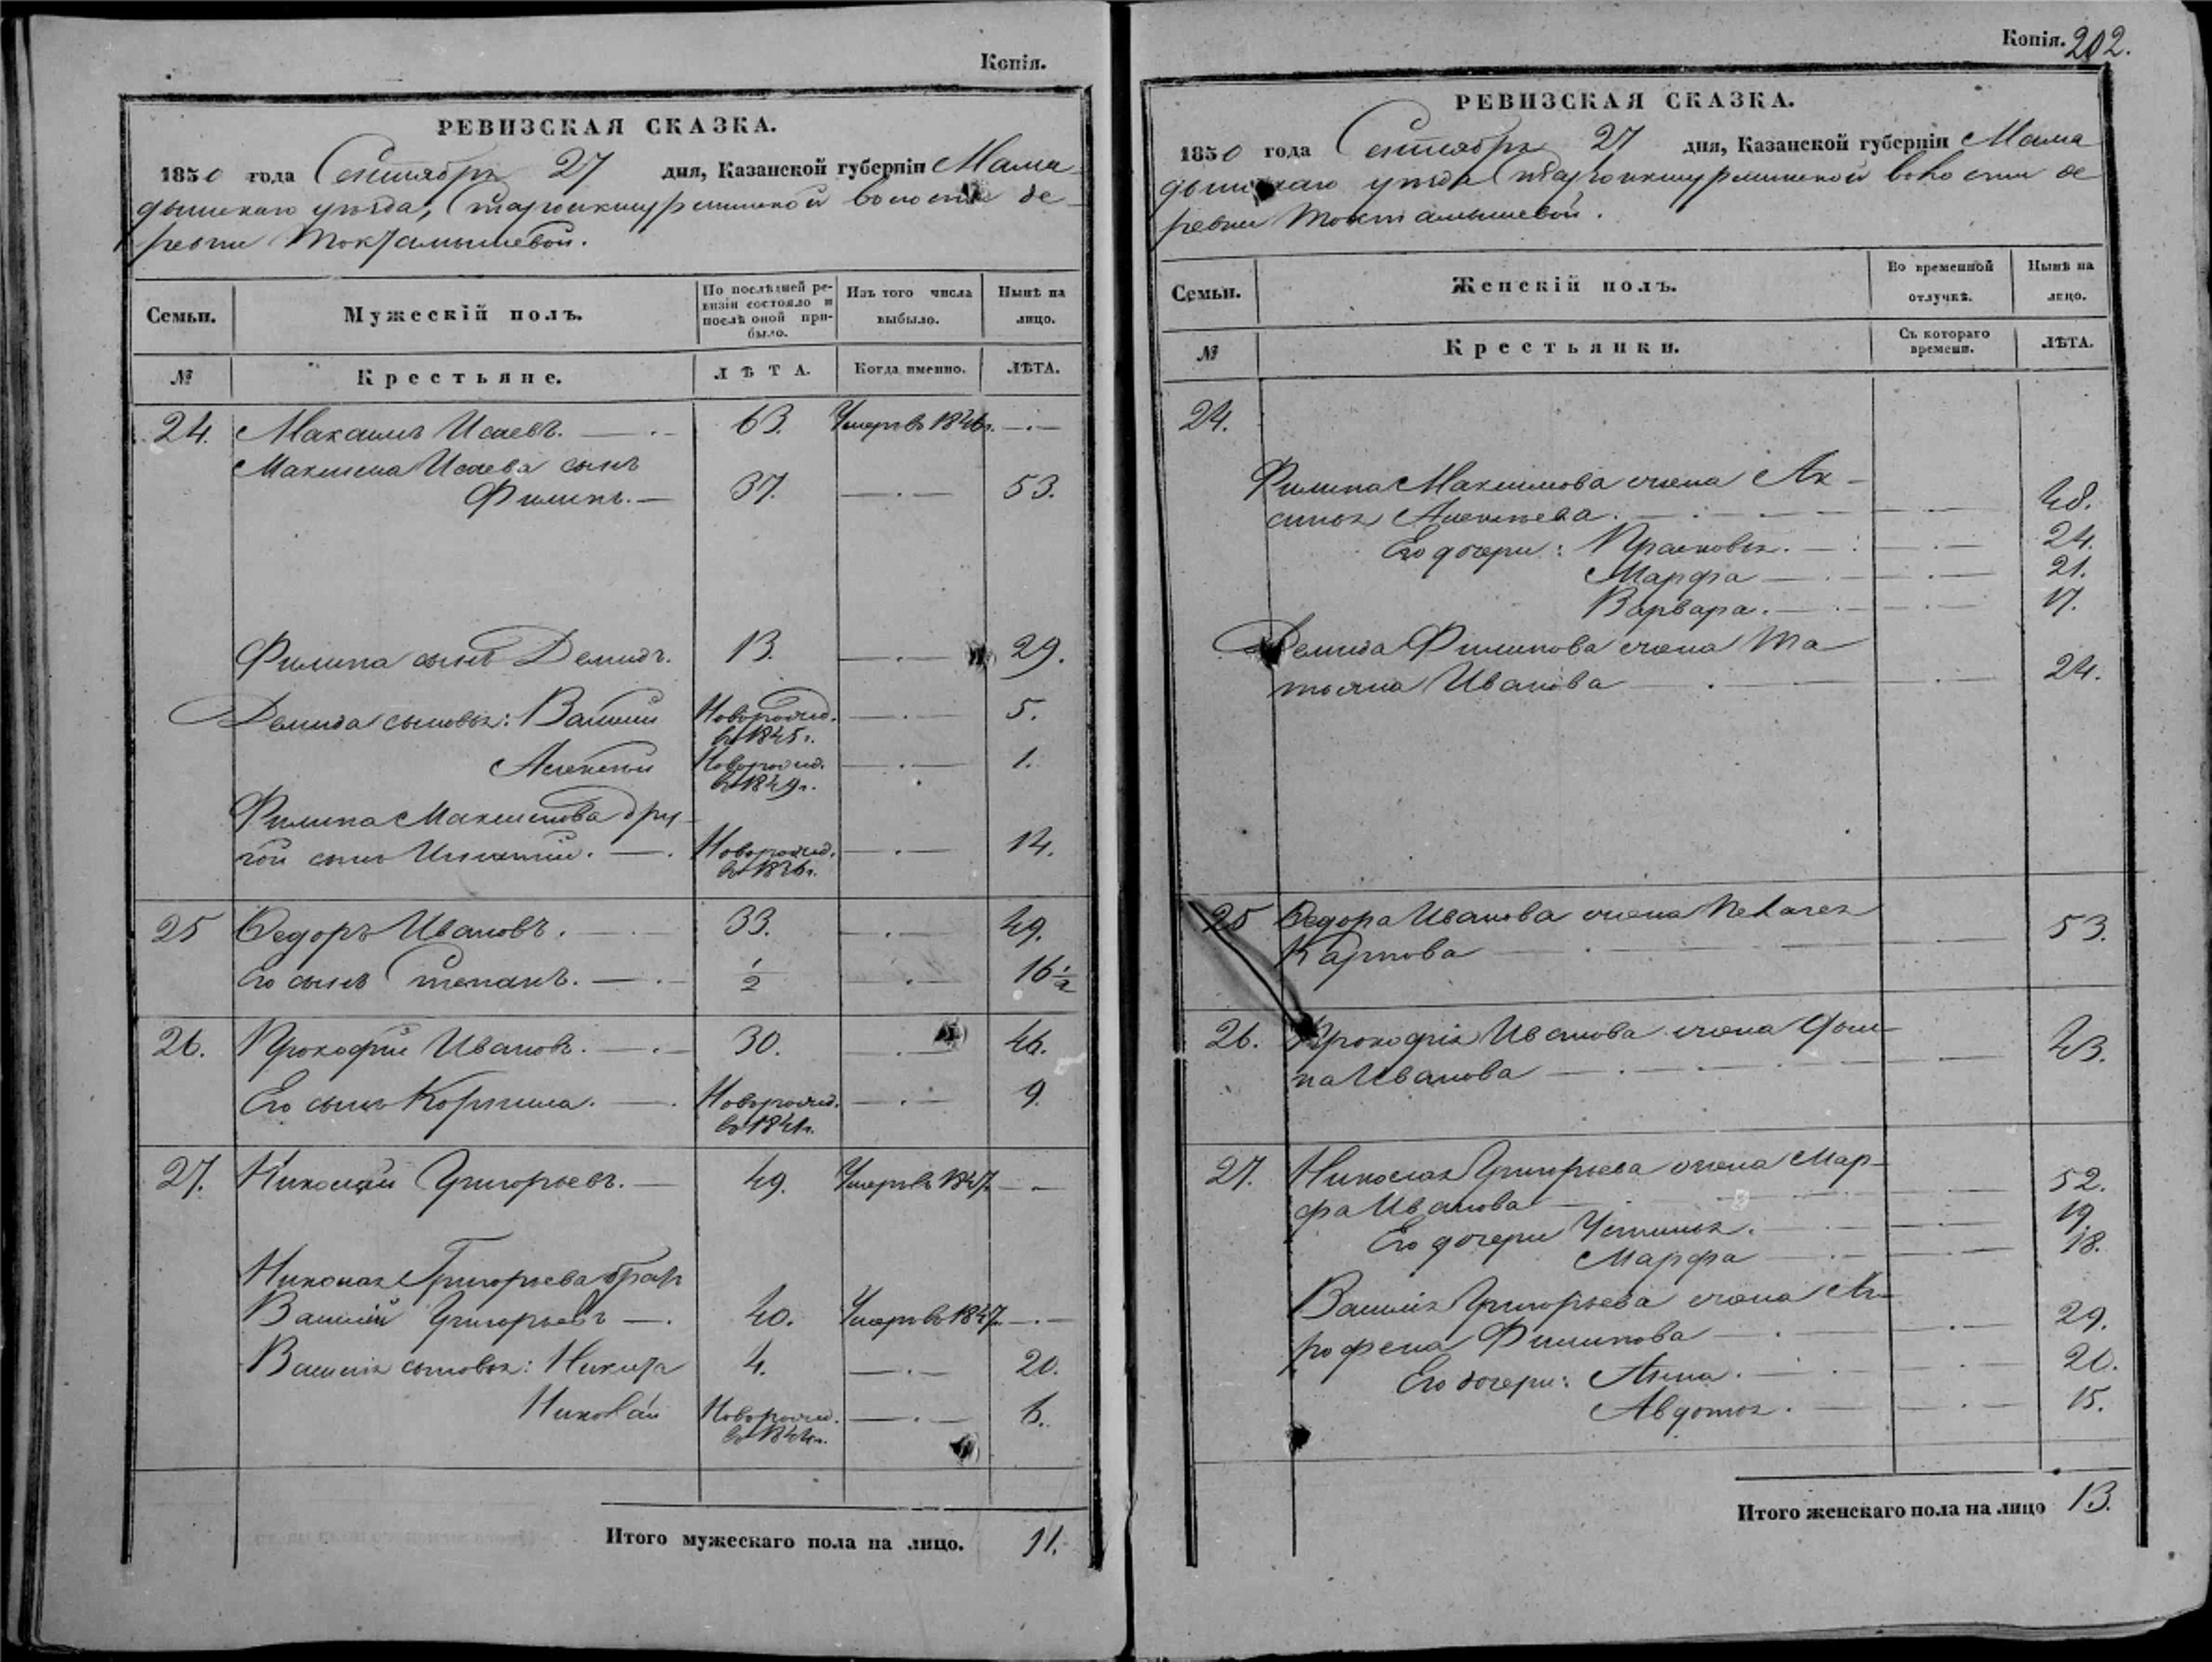 Копія.
РЕВИЗСКАЯ СКАЗКА.
1850 года Сентября 27 дня, Казанской губерніи Мама
дышскаго уѣзда, Староикшурминской волости де-
ревни Токтамышевой.
Семьи. Мужескій полъ. По послѣдней ре-
визіи состояло и
послѣ оной при-
было. Изъ того числа
выбыло. Нынѣ на
лицо.
№ Крестьяне. ЛѢТА. Когда именно. ЛѢТА.
24. Максимъ Исаевъ. 63. Умеръ въ 1846 г.
Максима Исаева сынъ
Филипъ. 37. 53.
Филипа сынъ Демидъ. 13. 29.
Демида сыновья: Василій Новорожд. 5.
въ 1845 г.
Алексѣй Новорожд. 1.
въ 1849 г.
Филипа Максимова дру-
гой сынъ Игнатій. Новорожд. 14.
въ 1836 г.
25 Федоръ Ивановъ. 33. 49.
его сынъ Степанъ. 1/2 16 1/2
26. Прокофій Ивановъ. 30. 46.
Его сынъ Корнила. Новорожд. 9.
въ 1841 г.
27. Николай Григорьевъ. 49. Умеръ въ 1847
Николая Григорьева братъ
Василій Григорьевъ 40. Умеръ въ 1847
Василія сыновья: Никита 4. 20.
Николай Новорожд. 6.
въ 1844 г.
Итого мужескаго пола на лицо. 11.
Копія. 202.
РЕВИЗСКАЯ СКАЗКА.
1850 года Сентября 27 дня, Казанской губерніи Мама
дышскаго уѣзда Староикшурминской волости де
ревни Токтамышевой.
Семьи. Женскій полъ. Во временной
отлучкѣ. Нынѣ на
лицо.
№ Крестьянки. Съ котораго
времени. ЛѢТА.
24.
Филипа Максимова жена Ак-
синья Алексѣева. 48.
Его дочери: Прасковья. 24.
Марфа 21.
Варвара. 17.
Демида Филипова жена Та
тьяна Иванова 24.
25 Федора Иванова жена Пелагея
Карпова 53.
26. Прокофія Иванова жена
Иванова 43.
27. Николая Григорьева жена Мар-
фа Иванова 52.
Его дочери Устинья. 19.
Марфа 18.
Василія Григорьева жена Аг-
рофена Филипова 29.
Его дочери: Анна. 20.
Авдотья. 15.
Итого женскаго пола на лицо 13.